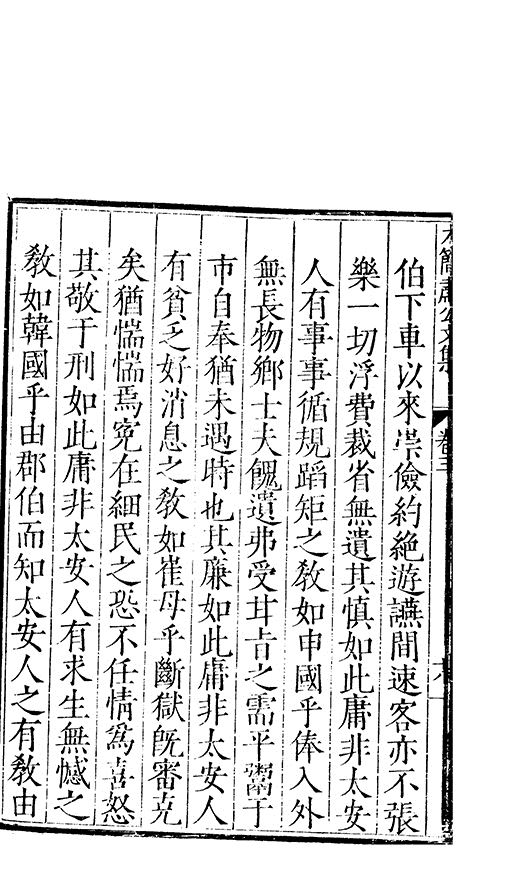 簡肅公文集
卷三
伯下車以來崇儉約絕游讌間速客亦不張
樂一切浮費裁省無遺其慎如此庸非太安
人有事事循規蹈矩之敎如申國乎俸入外
無長物鄉士夫餽遺弗受甘旨之需平鬻于
市自奉猶未遇時也其廉如此庸非太安人
有貧乏好消息之敎如崔母乎斷獄旣審克
矣猶惴惴焉寃在細民之恐不任情爲喜怒
其敬于刑如此庸非太安人有求生無憾之
敎如韓國乎由郡伯而知太安人之有敎由